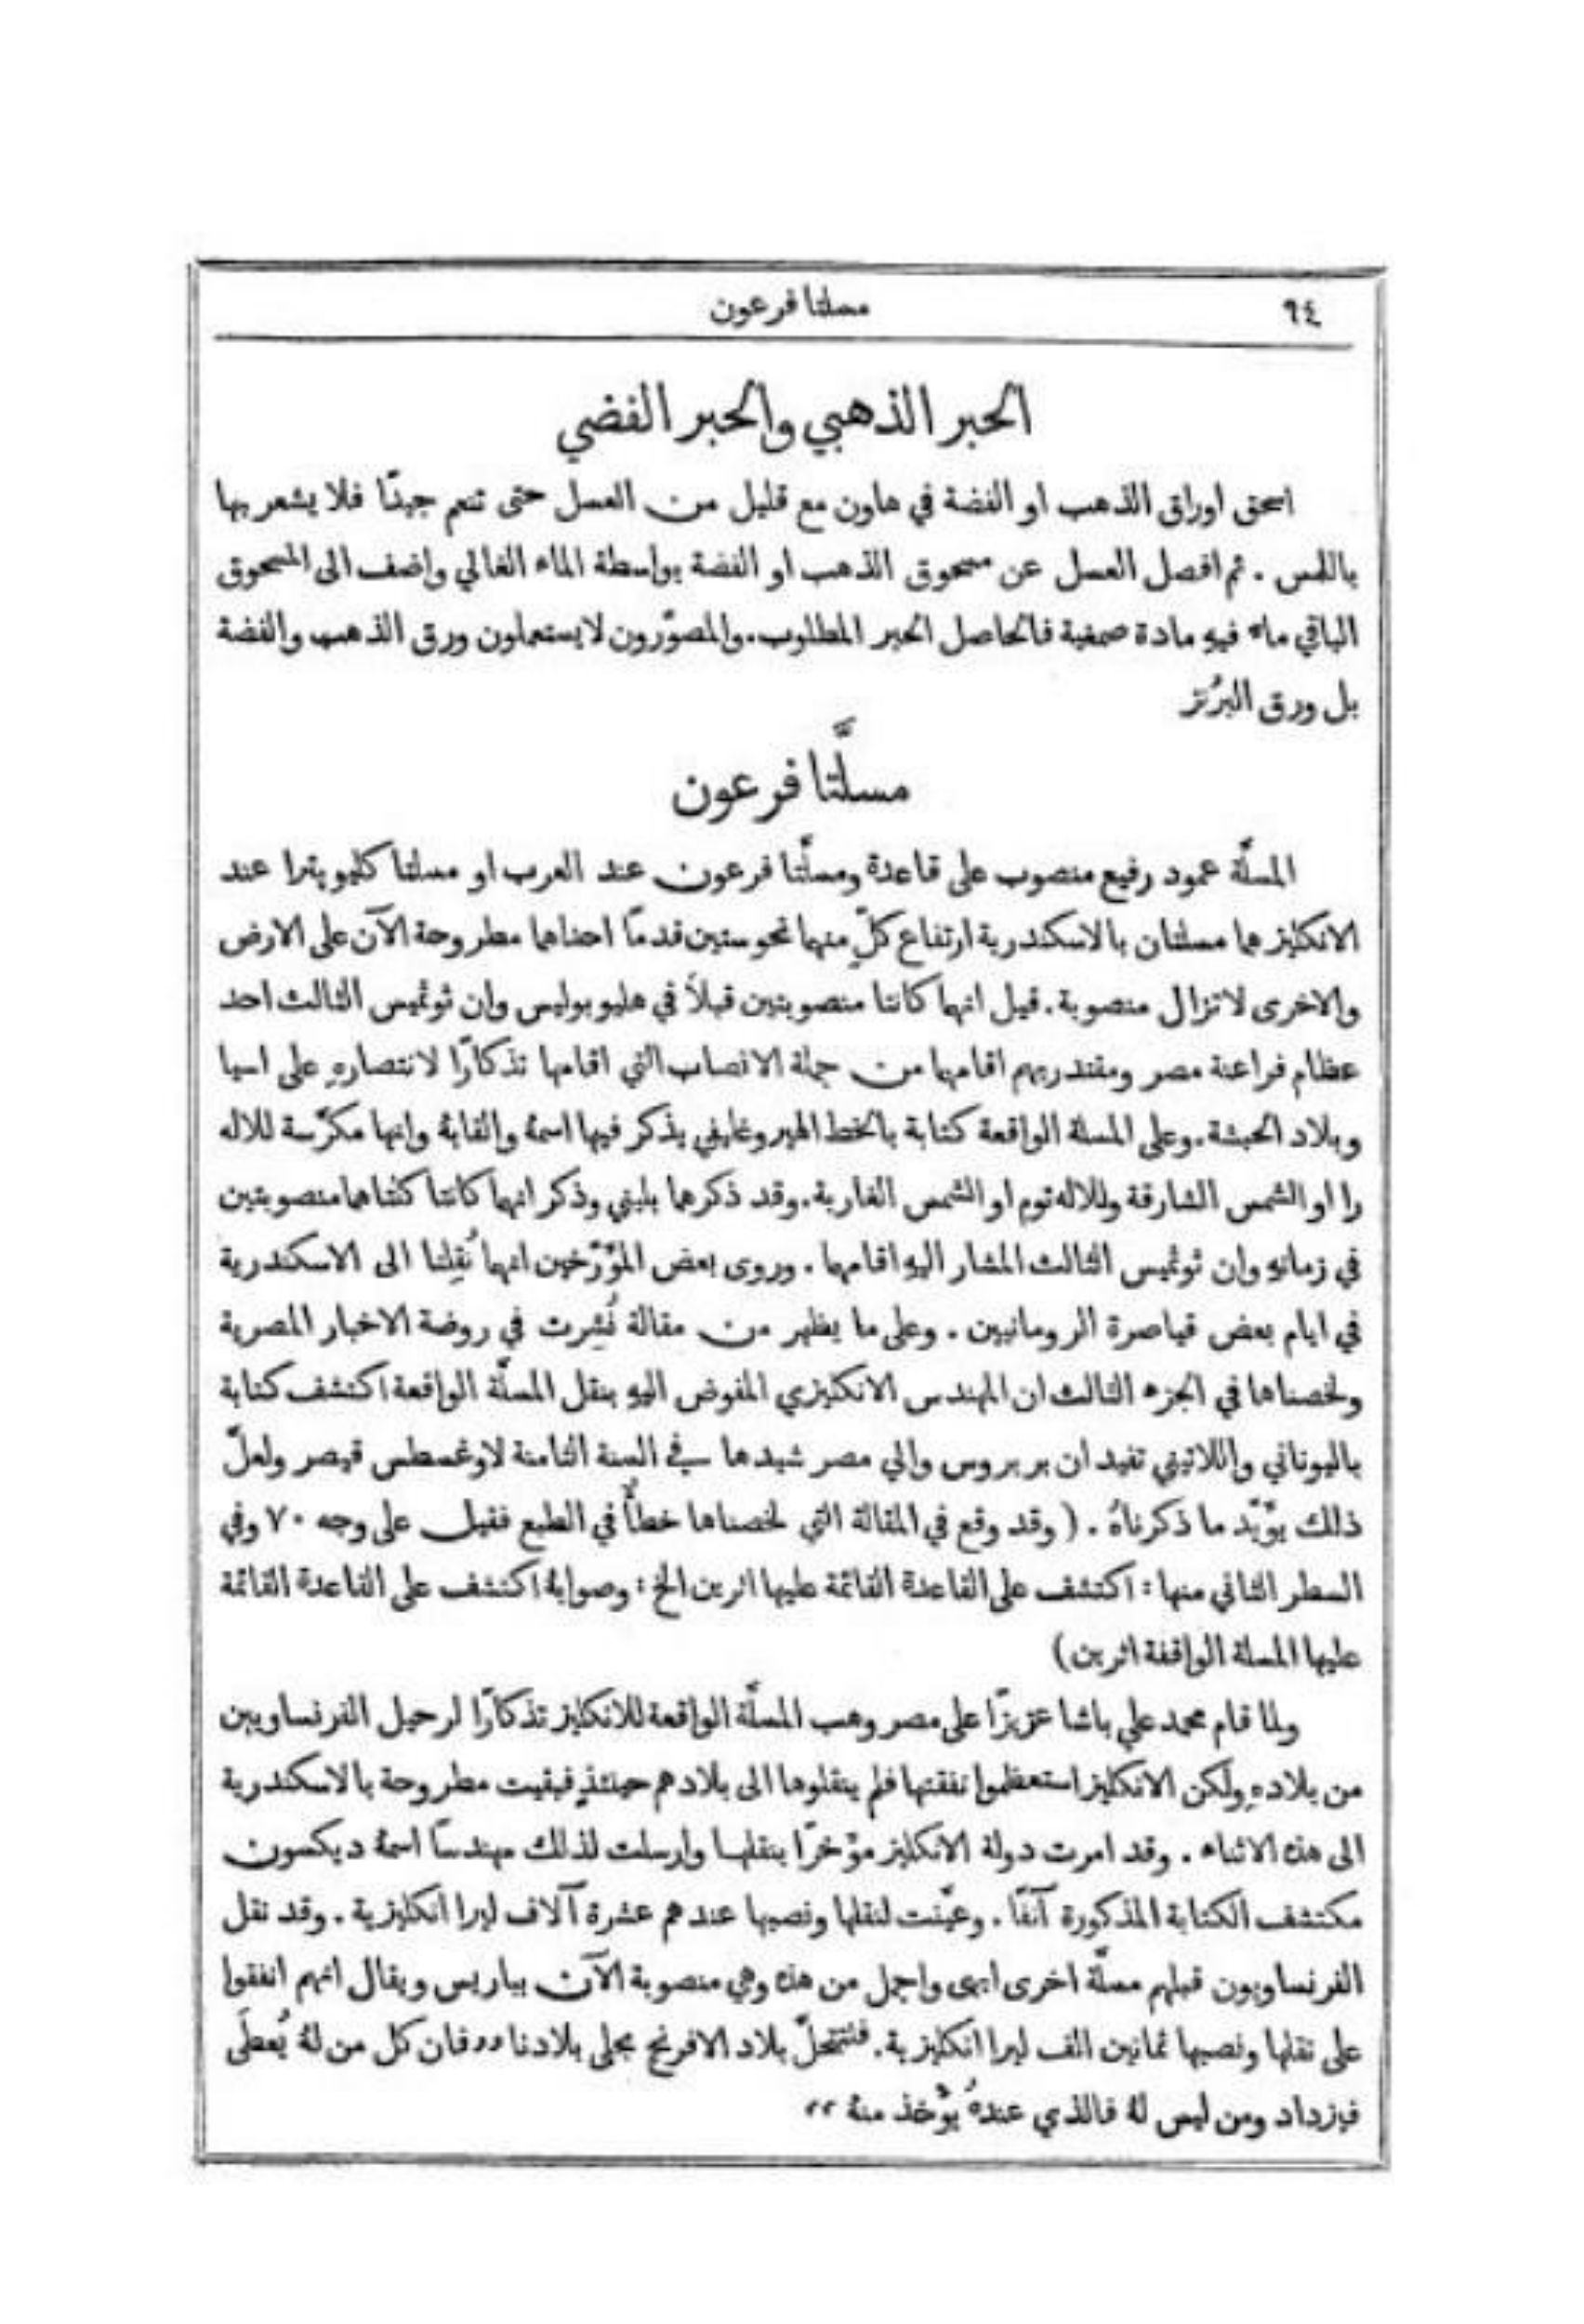 ٩٤
مسلتا فرعون
الحبر الذهبي والحبر الفضي
اسحق اوراق الذهب او الفضة في هاون مع قليل من العسل حتى تنعم جيدًا فلا يشعر بها
باللمس . ثم افصل العسل عن مسحوق الذهب او الفضة بواسطة الماء الغالي واضف الى المسحوق
الباقي ماء فيهِ مادة صمغية فالحاصل الحبر المطلوب. والمصوّرون لا يستعملون ورق الذهب والفضة
بل ورق البرُنز
مسلَّتا فرعون
المسلَّة عمود رفيع منصوب على قاعدة ومسلَّتا فرعون عند العرب او مسلتا كليوبترا عند
الانكليز هما مسلتان بالاسكندرية ارتفاع كلٍّ منهما نحو ستين قدمًا احداهما مطروحة الآن على الارض
والاخرى لا تزال منصوبة . قيل انهما كانتا منصوبتين قبلاً في هليوبوليس وان ثوثميس الثالث احد
عظام فراعنة مصر ومقتدريهم اقامهما من جملة الانصاب التي اقامها تذكارًا لانتصارهِ على اسيا
وبلاد الحبشة. وعلى المسلة الواقعة كتابة بالخط الهيروغليفي يذكر فيها اسمهُ والقابهُ وانها مكرّسة للاله
را او الشمس الشارقة وللاله توم او الشمس الغاربة. وقد ذكرهما بليني وذكر انهما كانتا كلتاهما منصوبتين
في زمانهِ وان ثوثميس الثالث المشار اليهِ اقامهما . وروى بعض المؤرّخين انهما نُقِلتا الى الاسكندرية
في ايام بعض قياصرة الرومانيين . وعلى ما يظهر من مقالة نُشِرت في روضة الاخبار المصرية
ولخصناها في الجزء الثالث ان المهندس الانكليزي المفوض اليهِ بنقل المسلَّة الواقعة اكتشف كتابة
باليوناني واللاتيني تفيد ان بربروس والي مصر شيدها في السنة الثامنة لاوغسطس قيصر ولعلَّ
ذلك يؤيّد ما ذكرناهُ . ( وقد وقع في المقالة التي لخصناها خطأٌ في الطبع فقيل على وجه ٧٠ وفي
السطر الثاني منها : اكتشف على القاعدة القائمة عليها اثرين الخ : وصوابهُ اكتشف على القاعدة القائمة
عليها المسلة الواقفة اثرين)
ولما قام محمد علي باشا عزيزًا على مصر وهب المسلَّة الواقعة للانكليز تذكارًا لرحيل الفرنساويين
من بلادهِ ولكن الانكليز استعظموا نفقتها فلم ينقلوها الى بلادهم حينئذٍ فبقيت مطروحة بالاسكندرية
الى هذه الاثناء . وقد امرت دولة الانكليز مؤخرًا بنقلها وارسلت لذلك مهندسًا اسمهُ ديكسون
مكتشف الكتابة المذكورة آنفًا . وعيّنت لنقلها ونصبها عندهم عشرة آلاف ليرا انكليزية . وقد نقل
الفرنساويون قبلهم مسلَّة اخرى ابهى واجمل من هذه وهي منصوبة الآن بباريس ويقال انهم انفقوا
على نقلها ونصبها ثمانين الف ليرا انكليزية. فلتتحلَّ بلاد الافرنج بحلى بلادنا ,,فان كل من لهُ يُعطَى
فيزداد ومن ليس لهُ فالذي عندهُ يؤخذ منهُ ,,